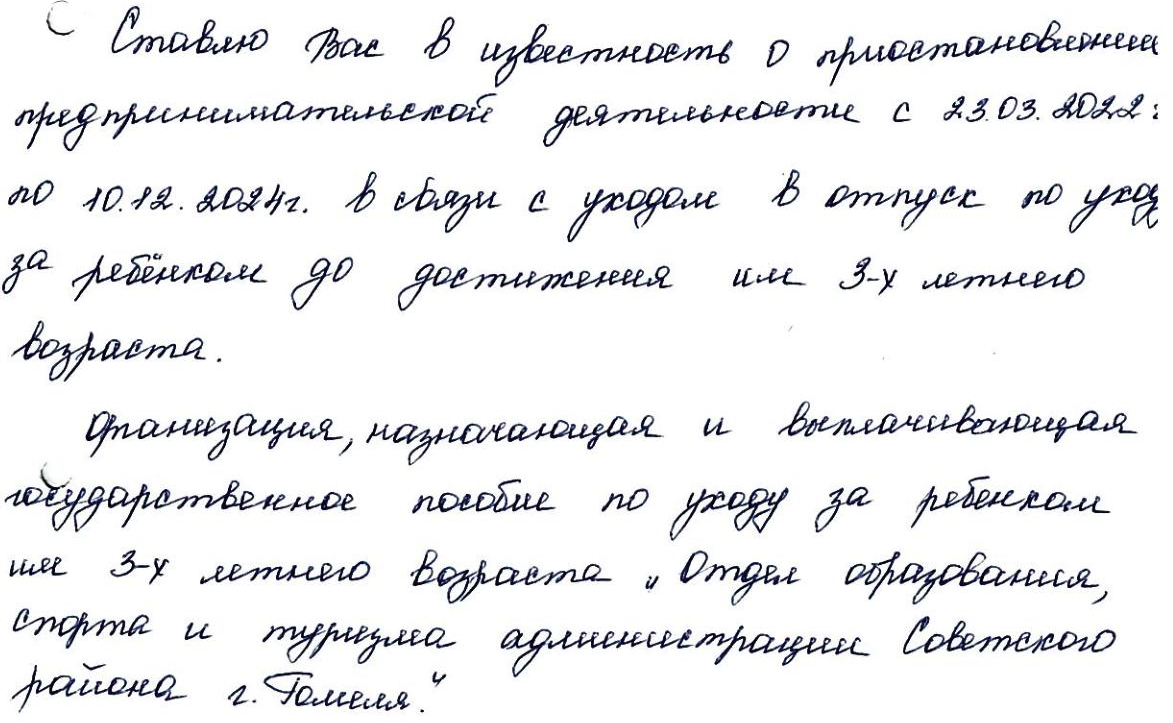 Ставлю Вас в известность о приостановлении
предпринимательской деятельности с 23.03.2022г
по 10.12.2024г. в связи с уходом в отпуск по уход
за ребёнком до достижения им 3-х летнего
возраста.
Организация, назначающая и выплачивающая
государственное пособие по уходу за ребенком
им 3-х летнего возраста „Отдел образования,
спорта и туризма администрации Советского
района г. Гомеля."